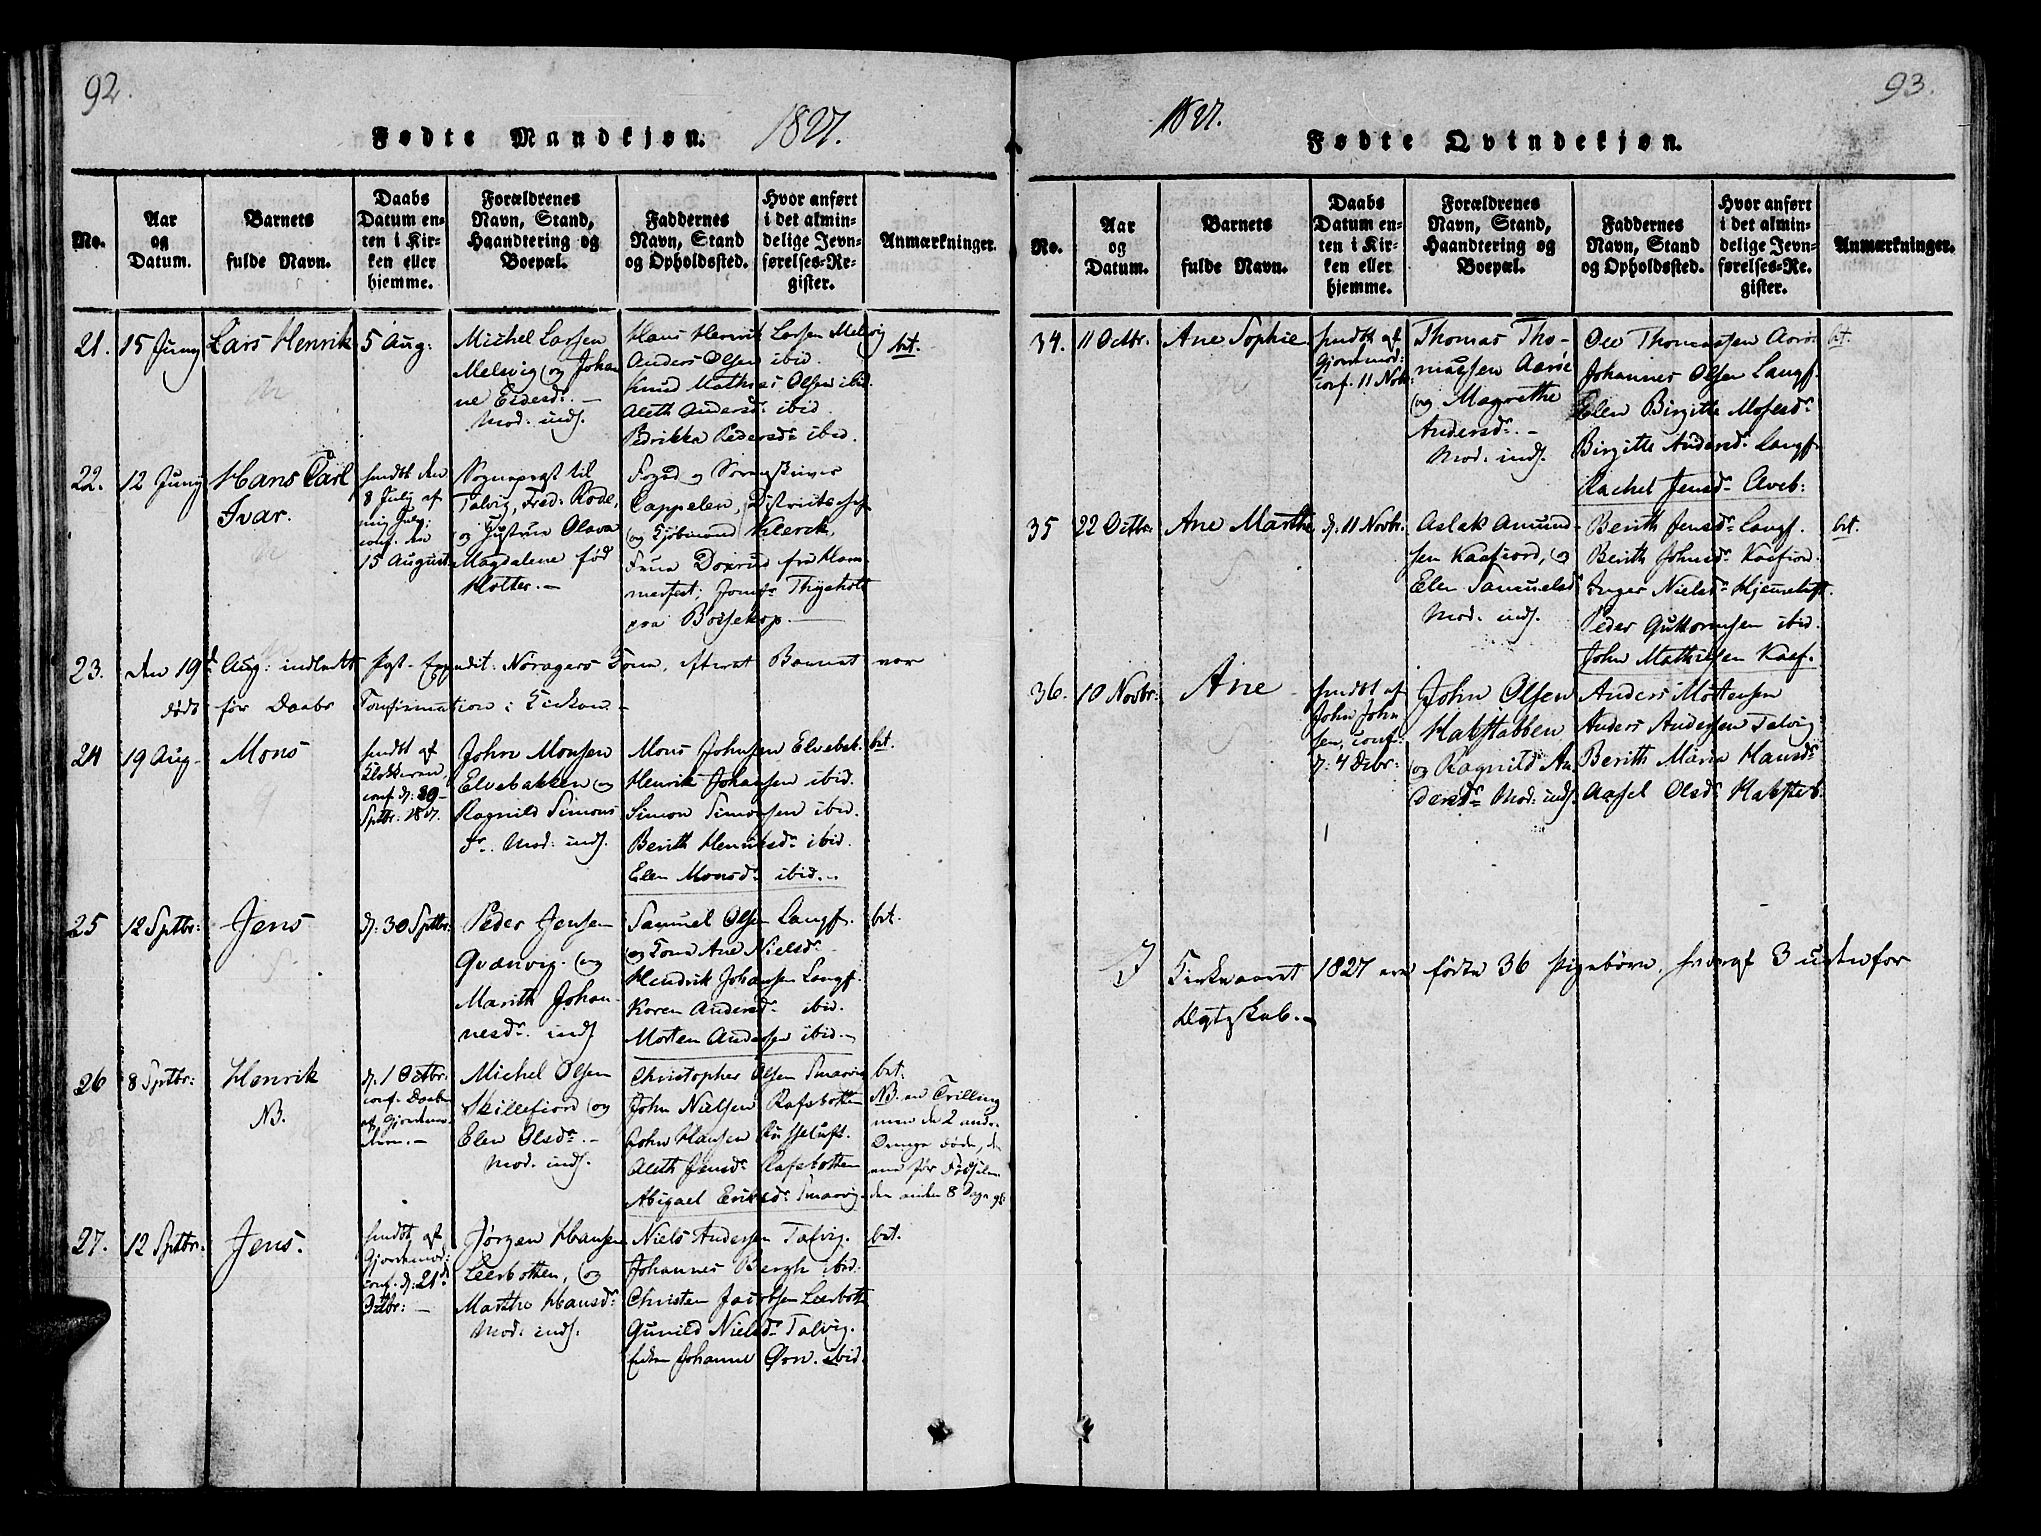 92.
Fødte Mandkjøn. 1827.
No.
Aar
og
Datum.
Barnets
fulde Navn.
Daabs
Datum en-
ten i Kir-
ken eller
hjemme.
Forældrenes
Navn, Stand,
Haandtering og
Boepæl.
Faddernes
Navn, Stand
og Opholdssted.
Hvor anført
i det almin-
delige Jevn-
førelses-Re-
gister.
Anmærkninger.
21.
15 Juny
Lars Henrik
5 Aug:
Michel Larsen
Melsvig og Johan
ne Eidesdr. –
Mod. inds.
Hans Henrik Larsen Melsvig
Anders Olsen ibid.
Knud Mathias Olsen ibid.
Aleth Andersdr. ibid.
Pedrikka Pedersdr. ibid.
bet.
22.
12 Juny
Hans Carl
Ivar.
hmdbt den
8 July af
mig
conf. den
15 August
Sogneprest til
Talvig, Fred: Rode,
og Justine Olava
Magdalene fød
Klotter. –
Foged og Sorenskriver
Cappelen, Districts
og Kjøbmand Klerck,
Frue fra Ham-
merfest, Jomfr. Thygeholt
fra Bossekop.
23.
den 19de Aug: indledt Kone, efterat Barnet var
død før Daabs Confirmation i Kirken –
24
19 Aug.
Mons
hmdbt af
Klokkeren,
conf. d: 30
Sptbr: 1827.
John Monsen
Elvebakken og
Ragnild Simons
dr. Mod: inds.
Mons Johnsen Elvebak.
Henrik Johansen ibid.
Simon Simonsen ibid.
Berith Henriksdr. ibid.
Elen Monsdr. ibid. –
bet.
25
12 Sptbr:
Jens
d: 30 Sptbr:
Peder Jensen
Qvænvig. og
Marith Johan-
nesdr. inds
Samuel Olsen Langf.
og Kone Ane Nielsdr.
Hendrik Johansen Langf.
Karen Andersdr. ibid.
Morten Andersen ibid. –
bet.
26
8 Sptbr:
Henrik
NB.
d: 1 Octbr:
conf. Daaben
af Gjordemo-
deren. –
Michel Olsen
Skillefiord og
Elen Olsdr. –
Mod. inds.
Christopher Olsen Smaavig
John Nielsen Rafsbotten
John Hansen Russeluft.
Aleth Jensdr. Rafsbotten
Abigael Eriksdr. Smaavig.
bet.
NB. en Trilling
men de 2 andre
Drenge døde, den
ene før Fødselen
den anden 8 Dage gl.
27.
12 Sptbr:
Jens.
hmdbt af
Gjordemod:
conf. d: 21de
Octbr: –
Jørgen Hansen
Leerbotten, og
Marthe Hansdr.
Mod: inds.
Niels Andersen Talvig.
Johannes Bergh ibid:
Christen Jacobsen Leerbott
Gunild Nielsdr. Talvig.
Enken Johanne Øvn. ibid.
bet.
93.
1827.
Fødte Qvindekjøn.
No.
Aar
og
Datum.
Barnets
fulde Navn.
Daabs
Datum en-
ten i Kir-
ken eller
hjemme.
Forældrenes
Navn, Stand,
Haandtering og
Boepæl.
Faddernes
Navn, Stand
og Opholdssted.
Hvor anført
i det almin-
delige Jevn-
førelses-Re-
gister.
Anmærkninger.
34.
11 Octbr.
Ane Sophie
hmdbt af
Gjordemod:
conf. 11 Nobr:
Thomas Tho-
massen Aarøe
og Magrethe
Andersdr. –
Mod. inds.
Ole Thomassen Aarøe
Johannes Olsen Langf.
Elen Birgitte Mosesdr.
Birgitte Andersdr. Langf.
Rachel Jensdr. Elveb:
bet.
35
22 Octbr.
Ane Marthe
d: 11 Novbr:
Aslak Amund-
sen Kaafiord, og
Elen Samuelsdr
Mod. inds.
Berith Jensdr. Langf.
Berith Johnsdr. Kaafiord.
Inger Nielsdr. Hjemmeluft.
Peder Guttormsen ibid.
John Mathiesen Kaaf.
bet.
36.
10 Novbr:
Ane
hmdbt af
John John
sen, conf:
d: 4 Debr:
John Olsen
Kabstabben
og Ragnild An
dersdr. Mod: inds.
Anders Mortensen
Anders Andersen Talvig
Berith Maria Hansdr.
Aasel Olsdr. Kabsteb.
I Kirkeaaret 1827 ere fødte 36 Pigebørn, hvoraf 3 udenfor
Ægteskab. –